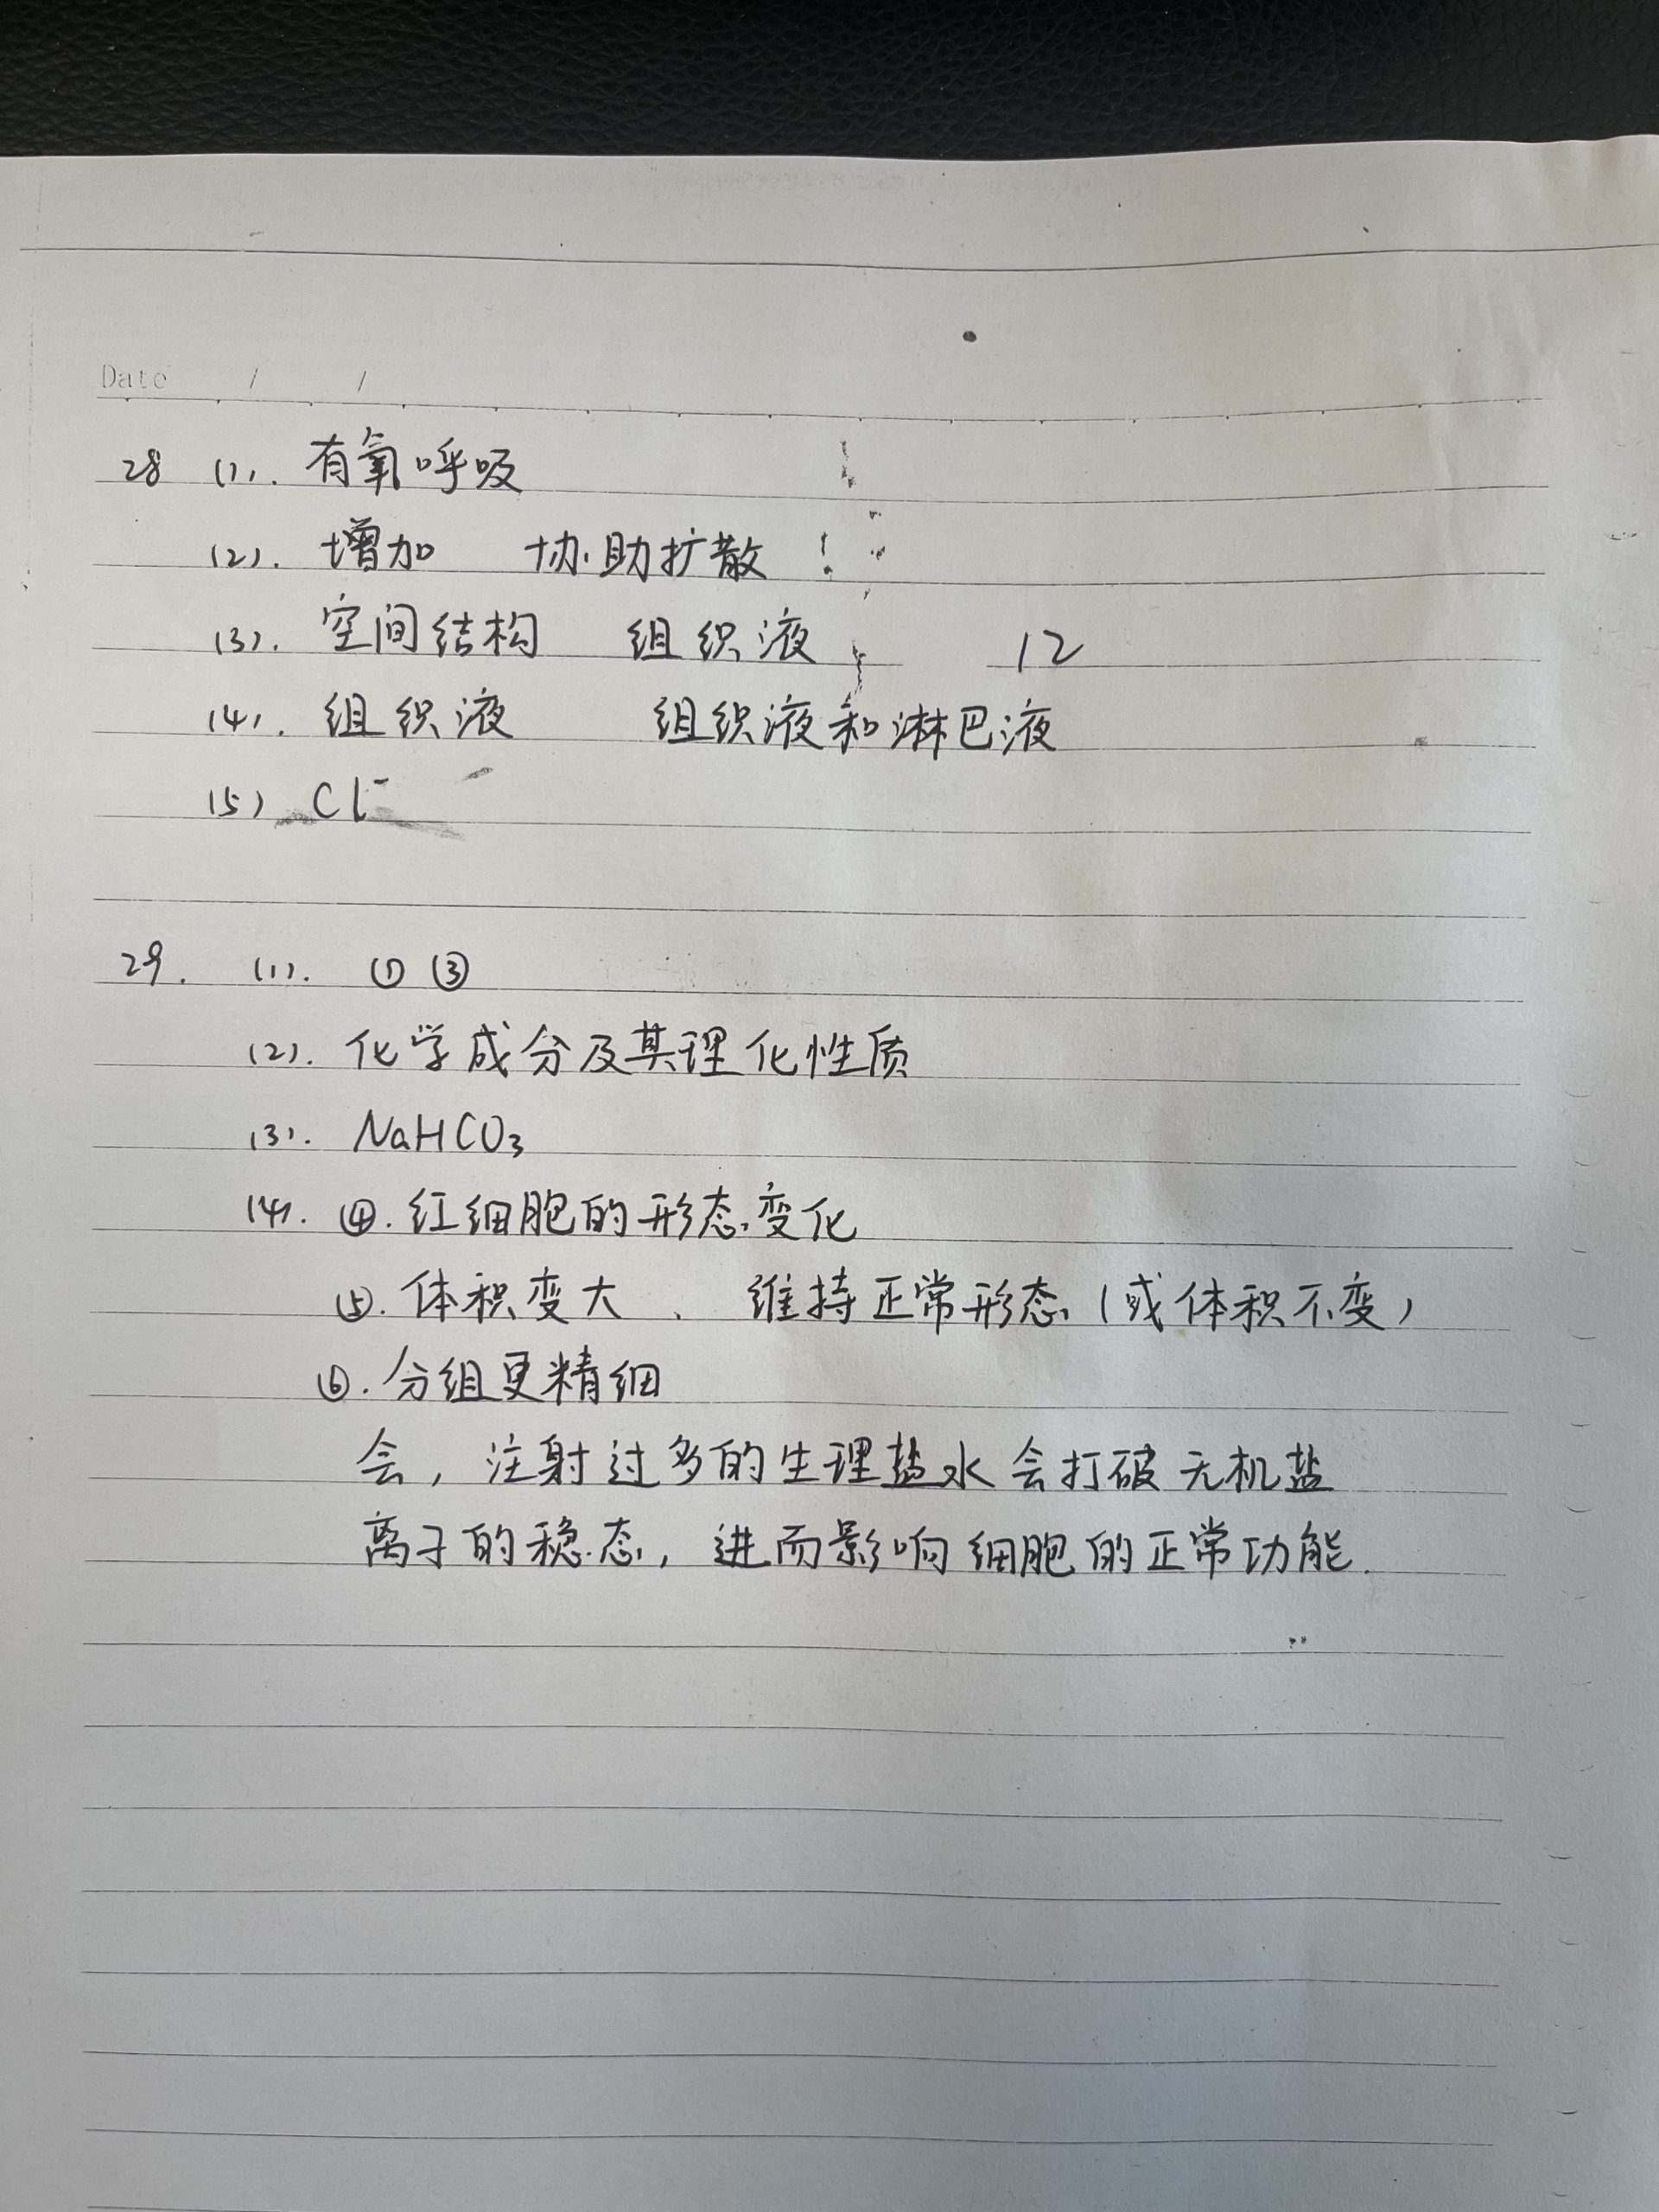 Date / /
28 (1). 有氧呼吸
(2). 增加 协助扩散
(3). 空间结构 组织液 12
(4). 组织液 组织液和淋巴液
(5) Cl⁻
29. (1). ① ③
(2). 化学成分及其理化性质
(3). NaHCO₃
(4). ④. 红细胞的形态变化
⑤. 体积变大 、 维持正常形态(或体积不变)
⑥. 分组更精细
会, 注射过多的生理盐水会打破无机盐
离子的稳态, 进而影响细胞的正常功能.